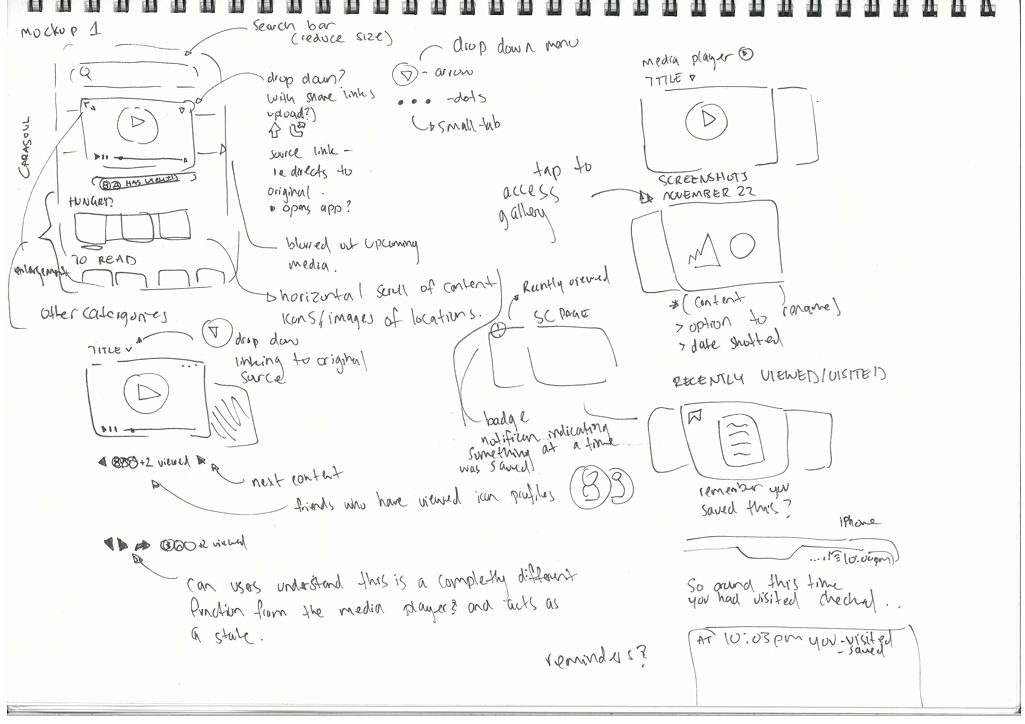 mockup 1
Search bar
(reduce size)
CARASOUL
drop down?
with share links
upload?)
source link -
re directs to
original.
opens app?
HAS VIEWED
HUNGRY?
TO READ
enlargement
other catergories
blurred out upcoming
media.
horizontal scroll of content
icons/images of locations.
drop down menu
- arrow
- dots
small tab
media player
TITLE
tap to
access
gallery
SCREENSHOTS
NOVEMBER 22
*(content
> option to rename)
> date shotted
TITLE
drop down
linking to original
source
+2 viewed
next content
friends who have viewed icon profiles
Recently viewed
SC PAGE
badge
indicating
something at a time
was saved
RECENTLY VIEWED/VISITED
remember you
saved this?
iPhone
10:00pm
So around this time
you had visited checked...
AT 10:03pm you - visited
- saved
reminders?
+2 viewed
Can users understand this is a completly different
function from the media player? and acts as
a state.